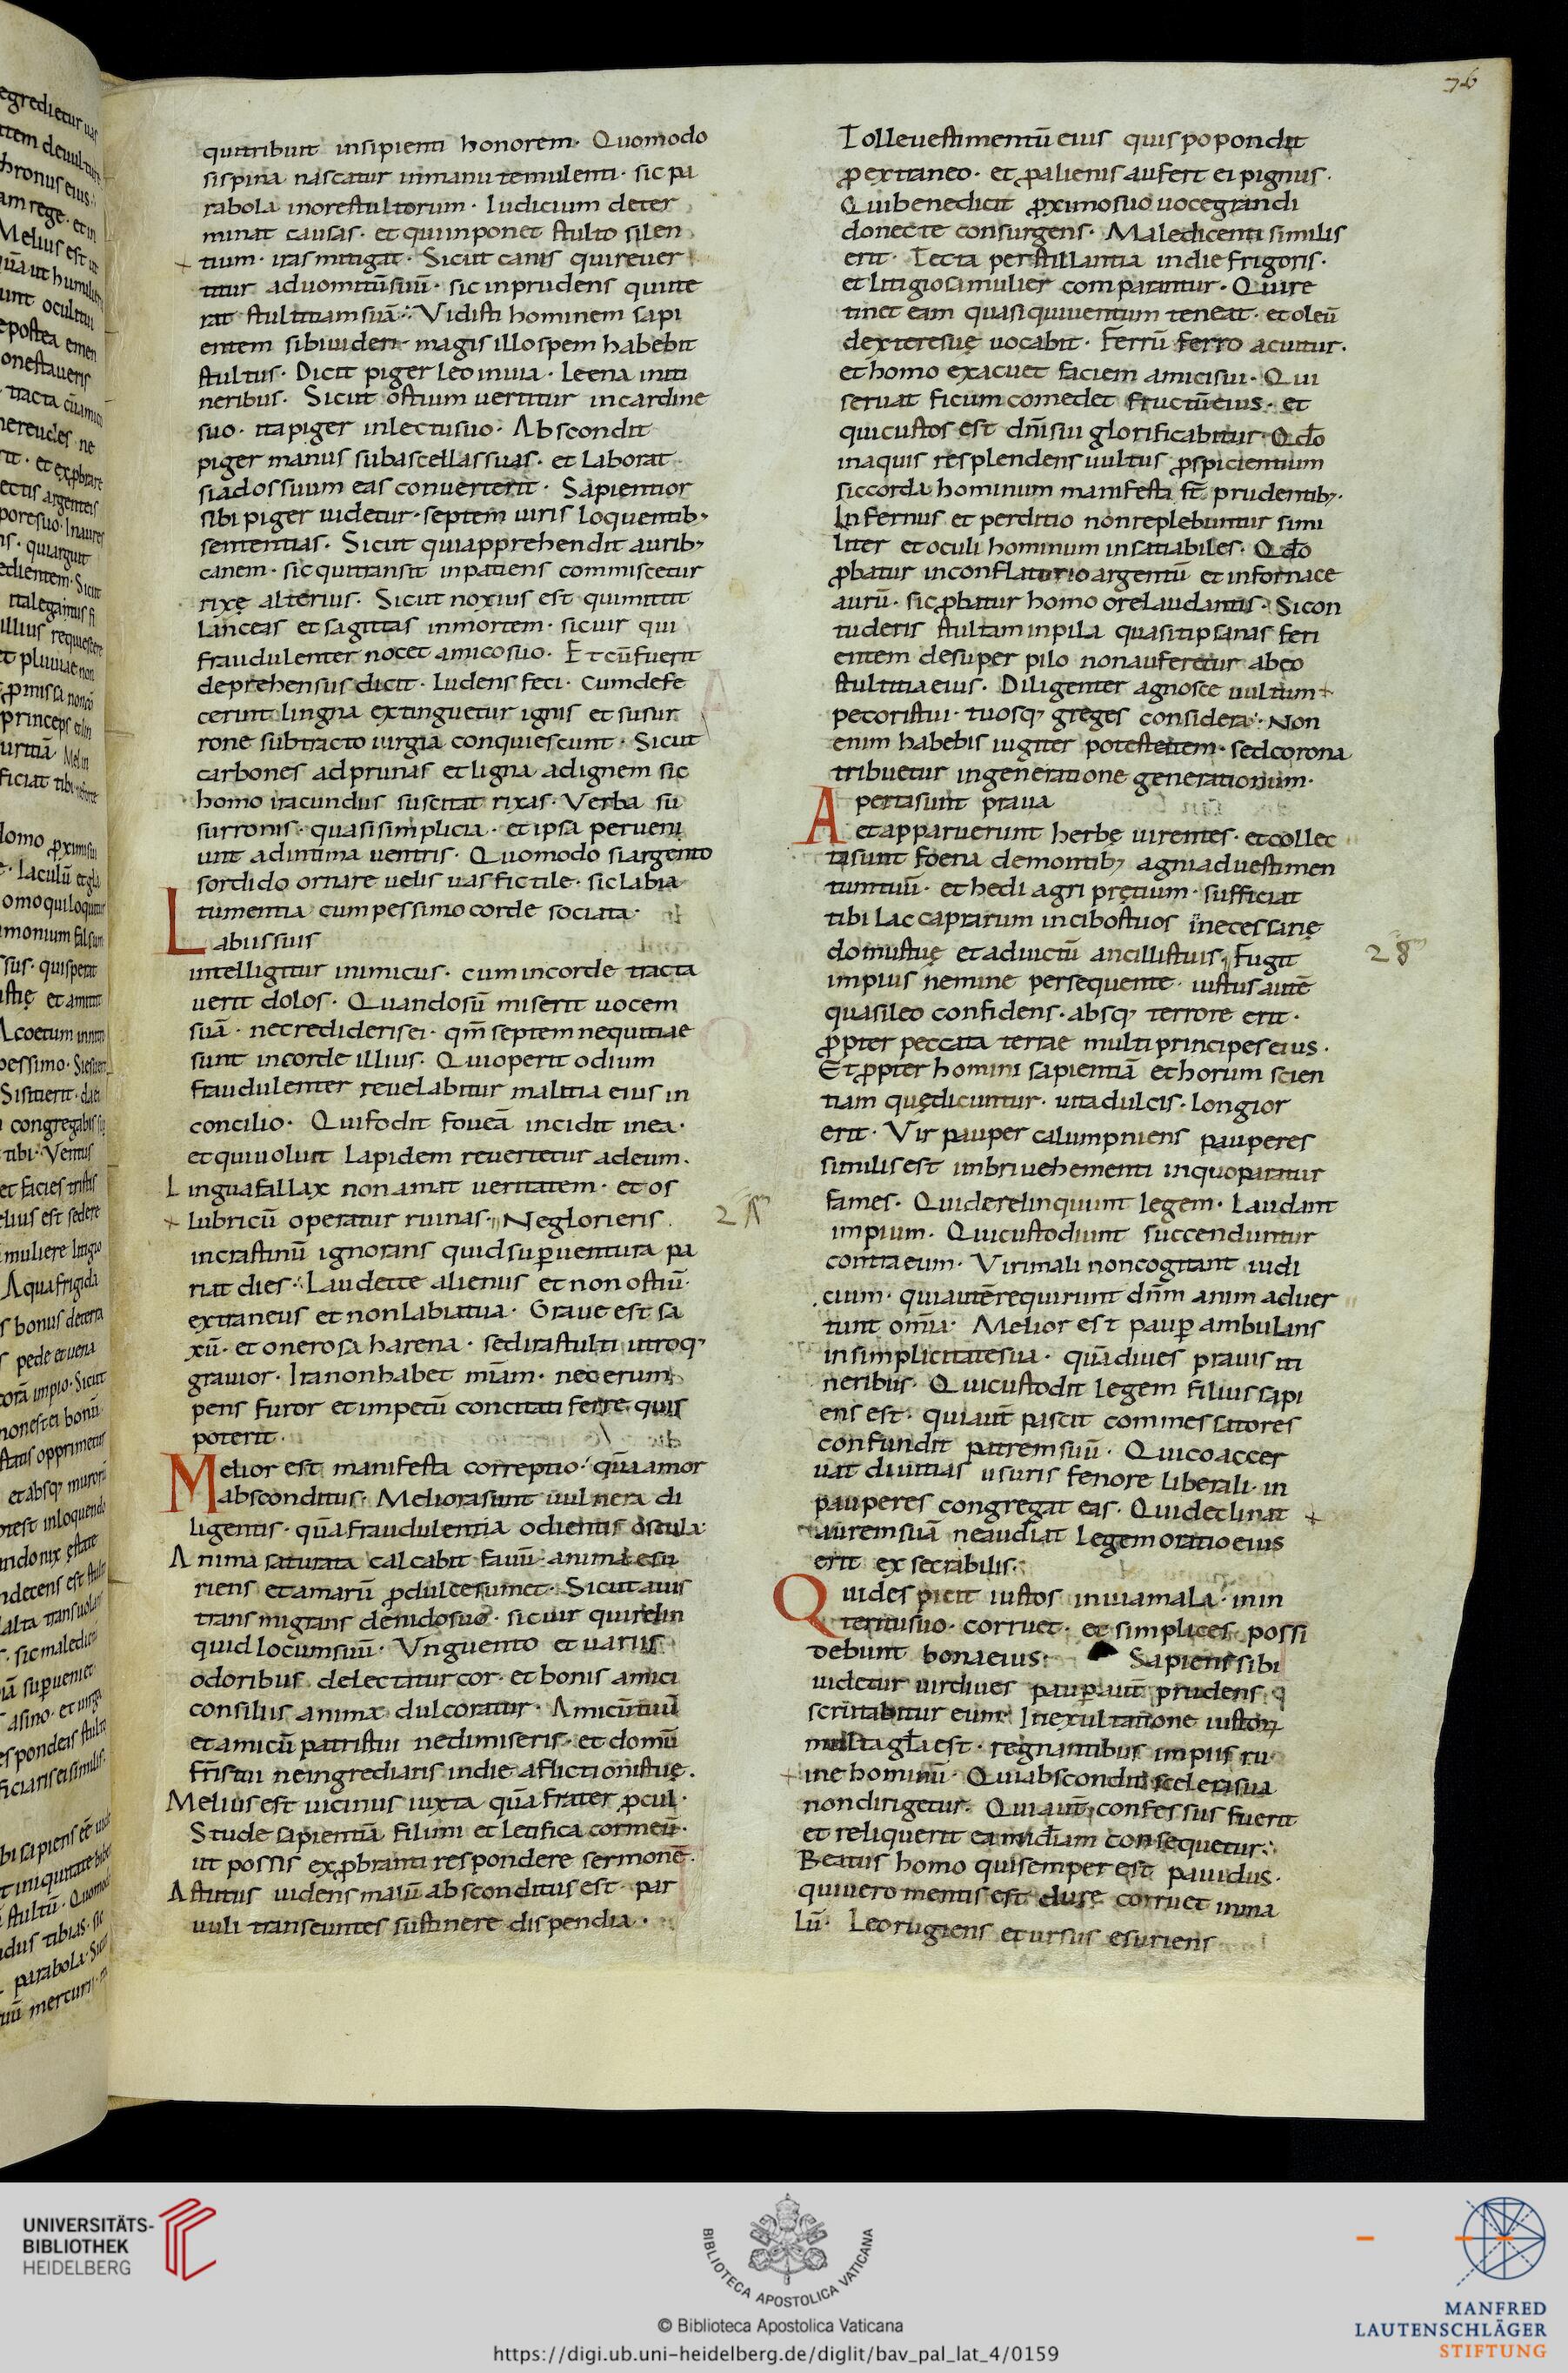 76
qui tribuit insipienti honorem. Quomodo
si spina nascatur in manu temulenti. sic pa
rabola in ore stultorum. Iudicium deter
minat causas. et qui inponet stulto silen
tium. iras mitigat. Sicut canis qui rever
titur ad vomitū suū. sic inprudens qui ite
rat stultitiam suā. Vidisti hominem sapi
entem sibi videri. magis illo spem habebit
stultus. Dicit piger leo in via. leena in iti
neribus. Sicut ostium vertitur in cardine
suo. ita piger in lectu suo. Abscondit
piger manus sub ascellas suas. et laborat
si ad os suum eas converterit. Sapientior
sibi piger videtur. septem viris loquentib;
sententias. Sicut qui apprehendit aurib;
canem. sic qui transit inpatiens commiscetur
rixę alterius. Sicut noxius est qui mittit
lanceas et sagittas in mortem. sic vir qui
fraudulenter nocet amico suo. Et cū fuerit
deprehensus dicit. Ludens feci. Cum defe
cerint lingna extinguetur ignis et susur
rone subtracto iurgia conquiescunt. Sicut
carbones ad prunas et ligna ad ignem sic
homo iracundus suscitat rixas. Verba su
surronis. quasi simplicia. et ipsa perveni
unt ad intima ventris. Quomodo si argento
sordido ornare velis vas fictile. sic labia
tumentia cum pessimo corde sociata.
Labiis suis
intelligitur inimicus. cum in corde tracta
verit dolos. Quando sū miserit vocem
suā. ne credideris ei. qm̄ septem nequitiae
sunt in corde illius. Qui operit odium
fraudulenter revelabitur malitia eius in
concilio. Qui fodit foveā incidit in ea.
et qui volvit lapidem revertetur ad eum.
Lingua fallax non amat veritatem. et os
lubricū operatur ruinas. Ne glorieris
in crastinū ignorans quid supventura pa
riat dies. Laudet te alienus et non os tiū.
extraneus et non labia tua. Grave est sa
xū. et onerosa harena. sed ira stulti utroq;
gravior. Ira non habet miām. nec erum
pens furor et impetū concitati ferre quis
poterit.
Melior est manifesta correptio. quā amor
absconditus. Meliora sunt vulnera di
ligentis. quā fraudulentia odientis oscula.
Anima saturata calcabit favū. anima esu
riens et amarū p dulce sumet. Sicut avis
transmigrans de nido suo. sic vir qui relin
quid locum suū. Unguento et variis
odoribus delectatur cor. et bonis amici
consiliis anima dulcoratur. Amicū tuū
et amicū patris tui ne dimiseris. et domū
fris tui ne ingrediaris in die aflictionis tuę.
Melius est vicinus iuxta quā frater pcul.
Stude sapientiā fili mi et letifica cor meū.
ut possis exprobranti respondere sermonē.
Astutus videns malū absconditus est. par
vuli transeuntes sustinere dispendia.
27
Tolle vestimentū eius qui spopondit
p extraneo. et p alienis aufert ei pignus.
Qui benedicit pximo suo voce grandi
de nocte consurgens. Maledicenti similis
erit. Tecta perstillantia in die frigoris.
et litigiosa mulier comparantur. Qui re
tinet eam quasi qui ventum teneat. et oleū
dexterę suę vocabit. Ferrū ferro acuitur.
et homo exacuet faciem amici sui. Qui
servat ficum comedet fructū eius. et
qui custos est dn̄i sui glorificabitur. Qdo
in aquis resplendens vultus pspicientium
sic corda hominum manifesta st̄ prudentib;.
Infernus et perditio non replebuntur simi
liter et oculi hominum insatiabiles. Qdo
pbatur in conflatorio argentū et in fornace
aurū. sic pbatur homo ore laudantis. Si con
tuderis stultam in pila quasi tipsanas feri
entem desuper pilo non auferetur ab eo
stultitia eius. Diligenter agnosce vultum
pecoris tui. tuosq; greges considera. Non
enim habebis iugiter potestatem. sed corona
tribuetur in generatione generationum.
Aperta sunt prava
et apparuerunt herbę virentes. et collec
ta sunt foena de montib; agni ad vestimen
tum tuū. et hedi agri prętium. sufficiat
tibi lac caprarum in cibos tuos in necessarię
domus tuę et ad victū ancillis tuis. Fugit
28
impius nemine persequente. iustus autē
quasi leo confidens. absq; terrore erit.
ppter peccata terrae multi principes eius.
Et ppter homini sapientiā et horum scien
tiam quę dicuntur. vita dulcis. longior
erit. Vir pauper calumpniens pauperes
similis est imbri vehementi in quo paratur
fames. Qui derelinquunt legem. laudant
impium. Qui custodiunt succenduntur
contra eum. Viri mali non cogitant iudi
cium. qui autē requirunt dn̄m animadver
tunt omīa. Melior est paup ambulans
in simplicitate sua. quā dives pravis iti
neribus. Qui custodit legem filius sapi
ens est. qui aut̄ pascit commessatores
confundit patrem suū. Qui coaccer
vat divitias usuris fenore liberali. in
pauperes congregat eas. Qui declinat
aurem suā ne audiat legem oratio eius
erit exsecrabilis.
Qui despicit iustos in via mala. in in
teritu suo. corruet. et simplices possi
debunt bona eius. Sapiens sibi
videtur vir dives paup aut̄ prudens
scrutabitur eum. In exultatione iustorꝝ
multa gl̄a est. regnantibus impiis ru
ine hominū. Qui abscondit scelera sua
non dirigetur. Qui aut̄ confessus fuerit
et reliquerit ea mīdiam consequetur.
Beatus homo qui semper est pavidus.
qui vero mentis est durę corruet in ma
lū. Leo rugiens et ursus esuriens
UNIVERSITÄTS-
BIBLIOTHEK
HEIDELBERG
BIBLIOTECA APOSTOLICA VATICANA
© Biblioteca Apostolica Vaticana
https://digi.ub.uni-heidelberg.de/diglit/bav_pal_lat_4/0159
MANFRED
LAUTENSCHLÄGER
STIFTUNG